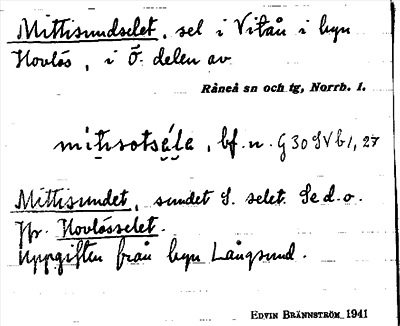 Mittisundselet, sel i Vitån i byn
Hovlös, i Ö. delen av
Råneå sn och tg, Norrb. l.
bf. n. G 30 S V b 1, 27
Mittisundet, sundet S. selet. Se d. o.
Jfr. Hovlösselet.
Uppgiften från byn Långsund.
EDVIN BRÄNNSTRÖM 1941